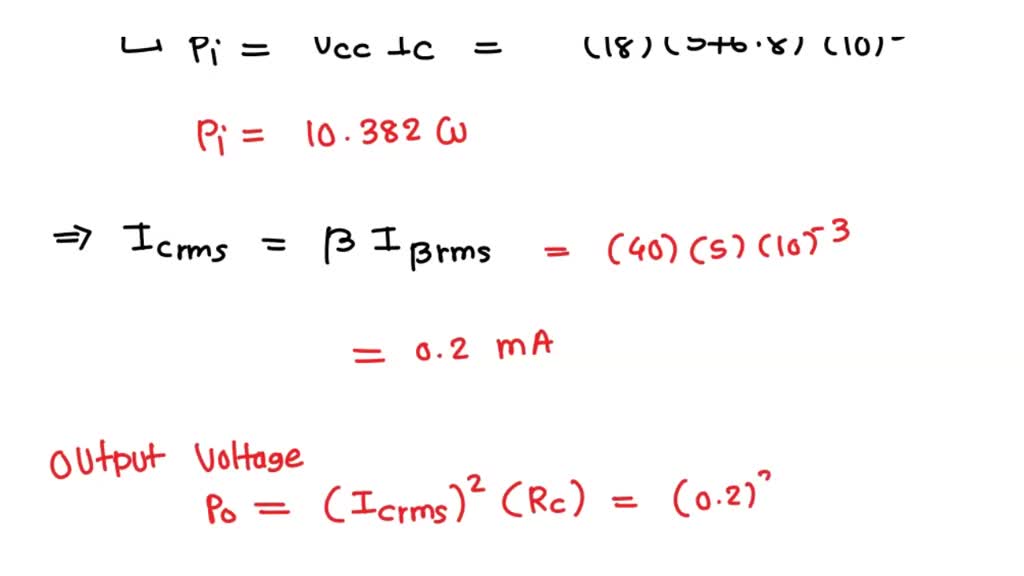 ↳ Pi = Vcc Ic = (18) (576.8) (10)
Pi = 10.382 W
⇒ Icrms = β Iβrms = (40) (5) (10)⁻³
= 0.2 mA
Output Voltage
Po = (Icrms)² (Rc) = (0.2)²